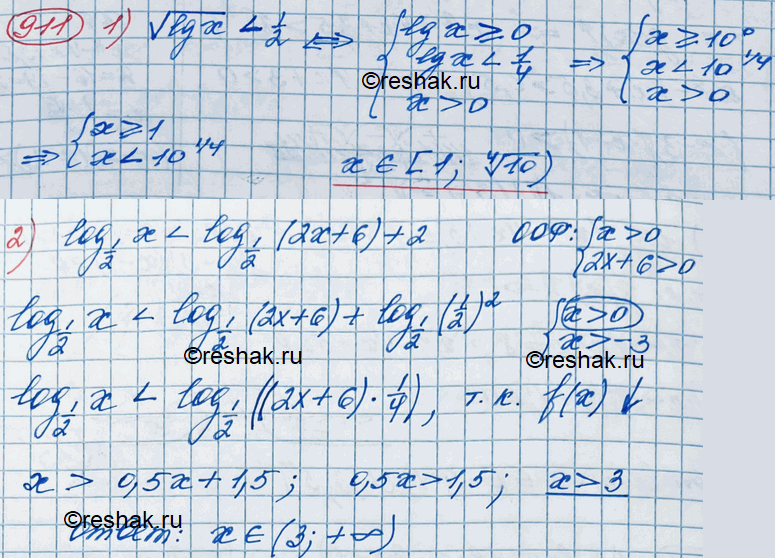 911 1) √lg x < 1/2 ⟺ { lg x ≥ 0 ⟹ { x ≥ 10⁰
lg x < 1/4 x < 10^1/4
x > 0 x > 0
©reshak.ru ©reshak.ru
⟹ { x ≥ 1
x < 10^1/4 x ∈ [1; ⁴√10)
2) log_1/2 x < log_1/2 (2x+6) + 2 ООФ: { x > 0
2x+6 > 0
log_1/2 x < log_1/2 (2x+6) + log_1/2 (1/2)² { x > 0
x > -3
©reshak.ru ©reshak.ru
log_1/2 x < log_1/2 ((2x+6)·1/4), т.к. f(x) ↓
x > 0,5x + 1,5; 0,5x > 1,5; x > 3
©reshak.ru
Ответ: x ∈ (3; +∞)